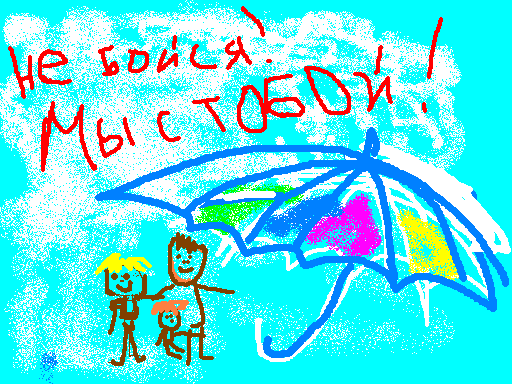 не бойся!
Мы с тобой!